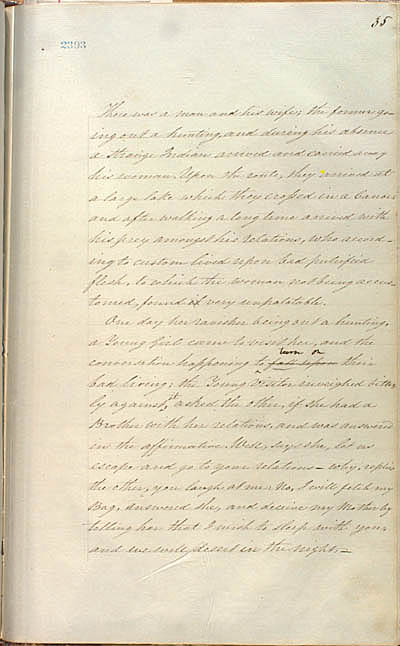 35
2393
There was a man and his wife; the former go-
ing out a hunting, and during his absence
a strange Indian arrived and carried away
his woman. Upon the route, they arrived at
a large lake which they crossed in a Canoe
and after walking a long time arrived with
his prey amongst his relations, who accord-
ing to custom lived upon bad putrified
flesh, to which the woman not being accus-
tomed, found it very unpalatable.
One day her ravisher being out a hunting,
a Young girl came to visit her, and the
turn on
conversation happening to fall upon their
bad living; the Young Visitor inveighed bitter-
ly against it, asked the other, if she had a
Brother with her relations, and was answered
in the affirmative. Well, says she, let us
escape and go to your relations – why, replies
the other, you laugh at me. No, I will fetch my
Bag, answered she, and deceive my Mother by
telling her that I wish to sleep with you,
and we will desert in the night. –